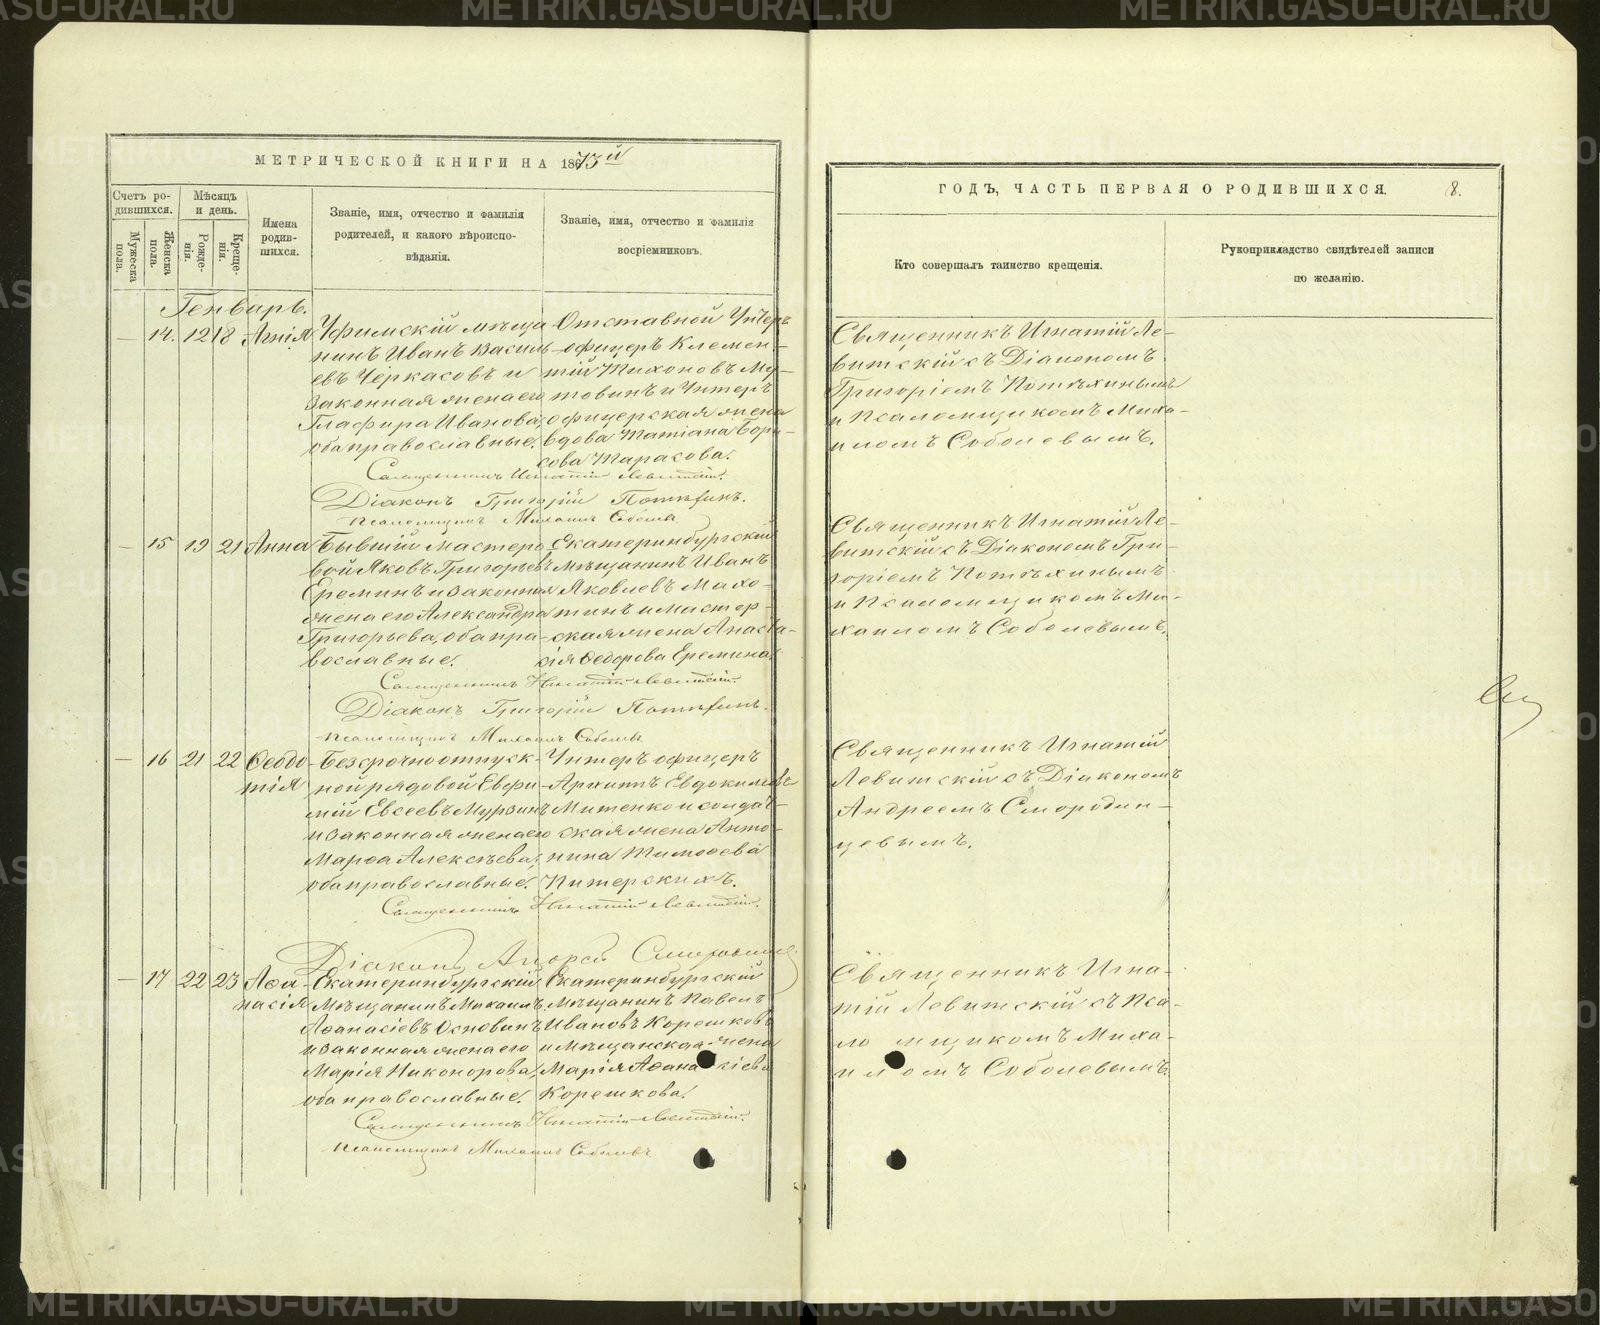 METRIKI.GASU-URAL.RU
МЕТРИЧЕСКОЙ КНИГИ НА 1873й
Счетъ ро-
дившихся.
Мужеска
пола.
Женска
пола.
Мѣсяцъ
и день.
Рожде-
нія.
Креще-
нія.
Имена
родив-
шихся.
Званіе, имя, отчество и фамилія
родителей, и какого вѣроиспо-
вѣданія.
Званіе, имя, отчество и фамилія
воспріемниковъ.
Генварь.
— 14. 12 18 Агнія
Уфимскій мѣща-
нинъ Иванъ Василь-
евъ Черкасовъ и
законная жена его
Глафира Иванова,
оба православные.
Отставной Унтеръ
офицеръ Клемен-
тій Тихоновъ Му-
товинъ и Унтеръ
офицерская жена
вдова Татіана Бори-
сова Тарасова.
Священникъ Игнатій Левитскій.
Діаконъ Григорій Потѣхинъ.
Псаломщикъ Михаилъ Соболевъ
— 15 19 21 Анна
Бывшій мастеро-
вой Яковъ Григорьевъ
Ереминъ и законная
жена его Александра
Григорьева, оба пра-
вославные.
Екатеринбургскій
Мѣщанинъ Иванъ
Яковлевъ Махо-
тинъ и мастер-
ская жена Анаста-
сія Ѳедорова Еремина.
Священникъ Игнатій Левитскій.
Діаконъ Григорій Потѣхинъ.
Псаломщикъ Михаилъ Соболевъ
— 16 21 22 Ѳеодо-
тія
Безсрочноотпуск-
ной рядовой Евфи-
мій Евсеевъ Мурзинъ
и законная жена его
Марѳа Алексѣева,
оба православные.
Унтеръ офицеръ
Архипъ Евдокимовъ
Митенко и солдат-
ская жена Анто-
нина Тимоѳеева
Питерскихъ.
Священникъ Игнатій Левитскій.
Діаконъ Андрей Смородинцевъ.
— 17 22 23 Аѳа-
насія
Екатеринбургскій
Мѣщанинъ Михаилъ
Аѳанасіевъ Основинъ
и законная жена его
Марія Никонорова,
оба православные.
Екатеринбургскій
Мѣщанинъ Павелъ
Ивановъ Корешковъ
и Мѣщанская жена
Марія Аѳанасіева
Корешкова.
Священникъ Игнатій Левитскій.
Псаломщикъ Михаилъ Соболевъ
ГОДЪ, ЧАСТЬ ПЕРВАЯ О РОДИВШИХСЯ. 8.
Кто совершалъ таинство крещенія.
Рукоприкладство свидѣтелей записи
по желанію.
Священникъ Игнатій Ле-
витскій съ Діакономъ
Григоріемъ Потѣхинымъ
и Псаломщикомъ Миха-
иломъ Соболевымъ.
Священникъ Игнатій Ле-
витскій съ Діакономъ Гри-
горіемъ Потѣхинымъ
и Псаломщикомъ Ми-
хаиломъ Соболевымъ.
Священникъ Игнатій
Левитскій съ Діакономъ
Андреемъ Смородин-
цевымъ.
Священникъ Игна-
тій Левитскій съ Пса-
ломщикомъ Миха-
иломъ Соболевымъ.